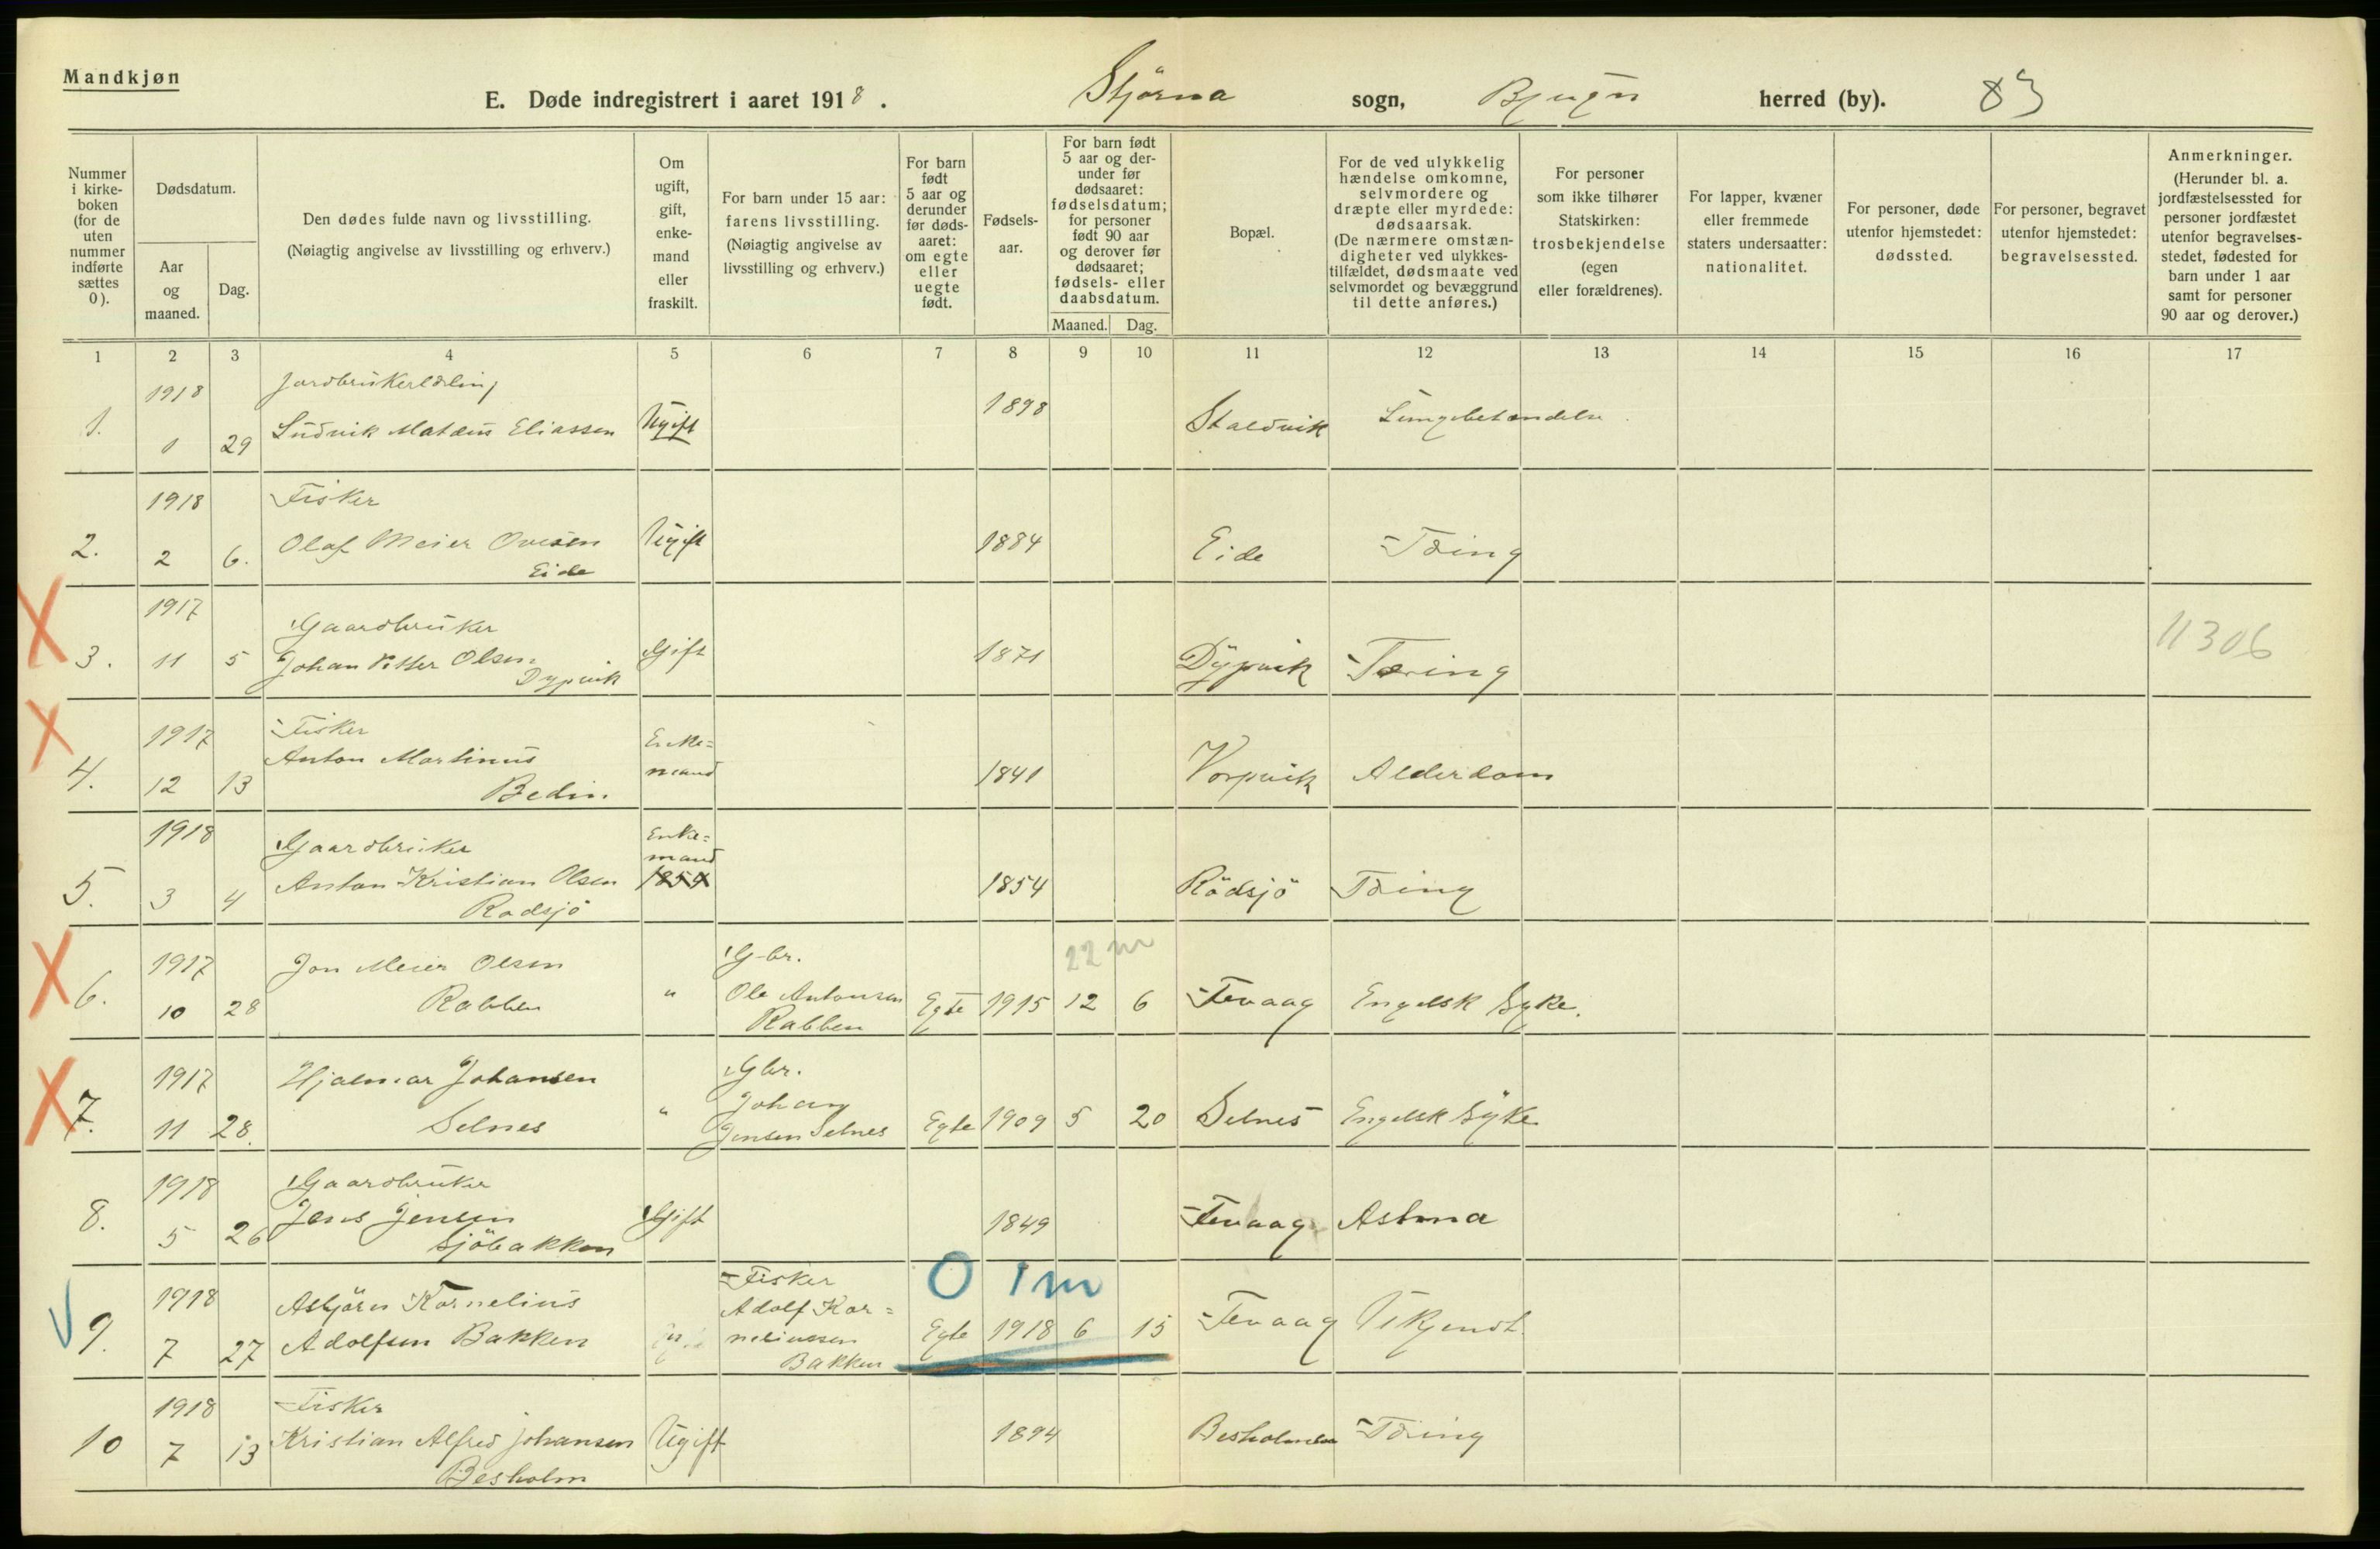 Mandkjøn
E. Døde indregistrert i aaret 1918.
Stjørna sogn, Bjugn herred (by). 83
Nummer i kirke-boken (for de uten nummer indførte sættes 0).
Dødsdatum.
Aar og maaned.
Dag.
Den dødes fulde navn og livsstilling.
(Nøiagtig angivelse av livsstilling og erhverv.)
Om ugift, gift, enke-mand eller fraskilt.
For barn under 15 aar: farens livsstilling.
(Nøiagtig angivelse av livsstilling og erhverv.)
For barn født 5 aar og derunder før døds-aaret: om egte eller uegte født.
Fødsels-aar.
For barn født 5 aar og der-under før dødsaaret: fødselsdatum; for personer født 90 aar og derover før dødsaaret; fødsels- eller daabsdatum.
Maaned. Dag.
Bopæl.
For de ved ulykkelig hændelse omkomne, selvmordere og dræpte eller myrdede: dødsaarsak.
(De nærmere omstæn-digheter ved ulykkes-tilfældet, dødsmaate ved selvmordet og bevæggrund til dette anføres.)
For personer som ikke tilhører Statskirken: trosbekjendelse (egen eller forældrenes).
For lapper, kvæner eller fremmede staters undersaatter: nationalitet.
For personer, døde utenfor hjemstedet: dødssted.
For personer, begravet utenfor hjemstedet: begravelsessted.
Anmerkninger.
(Herunder bl. a. jordfæstelsessted for personer jordfæstet utenfor begravelses-stedet, fødested for barn under 1 aar samt for personer 90 aar og derover.)
1 2 3 4 5 6 7 8 9 10 11 12 13 14 15 16 17
1918
1. 1 29 Ludvik Matæus Eliassen Ugift 1898 Staldvik Lungebetændelse.
1918 Fisker
2. 2 6. Olaf Meier Ovesen Ugift 1884 Eide Tæring
Eide
1917 Gaardbruker
3. 11 5 Johan Petter Olsen Gift 1871 Dypvik Tæring 11306
Dypvik
1917 Fisker Enke=
4. 12 13 Anton Martinus mand 1841 Vorpvik Alderdom
Bedin.
1918 Gaardbruker Enke=
mand
5. 3 4 Anton Kristian Olsen 1854 1854 Rödsjö Tæring
Rödsjö
22 m
1917 Jon Meier Olsen G-br.
6. 10 28 Rabben " Ole Antonsen Egte 1915 12 6 Tevaag Engelsk Syke.
Rabben
1917 Hjalmar Johansen Gbr.
7. 11 28. Selnes " Johan Egte 1909 5 20 Selnes Engelsk Syke
Jensen Selnes
1918 Gaardbruker
8. 5 26 Jens Jensen Gift 1849 Tevaag Astma
Sjöbakken
0 1 m
1918 Asbjörn Kornelius Fisker
Adolf Kor=
9. 7 27 Adolfsen Bakken neliussen Egte 1918 6 15 Tevaag Ukjendt.
Bakken
1918 Fisker
10 7 13 Kristian Alfred Johansen Ugift 1894 Besholmen Tæring
Besholm